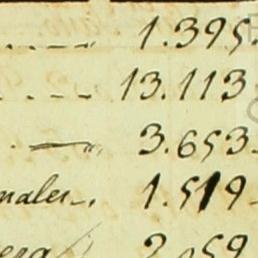 1.395.
13.113
3.653.
nales. 1.519.
2.059